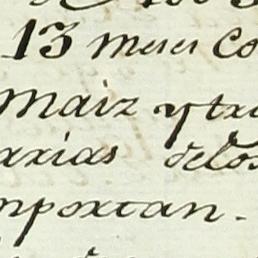 13 Meses Co
Maiz y tri
arias delos
mportan.